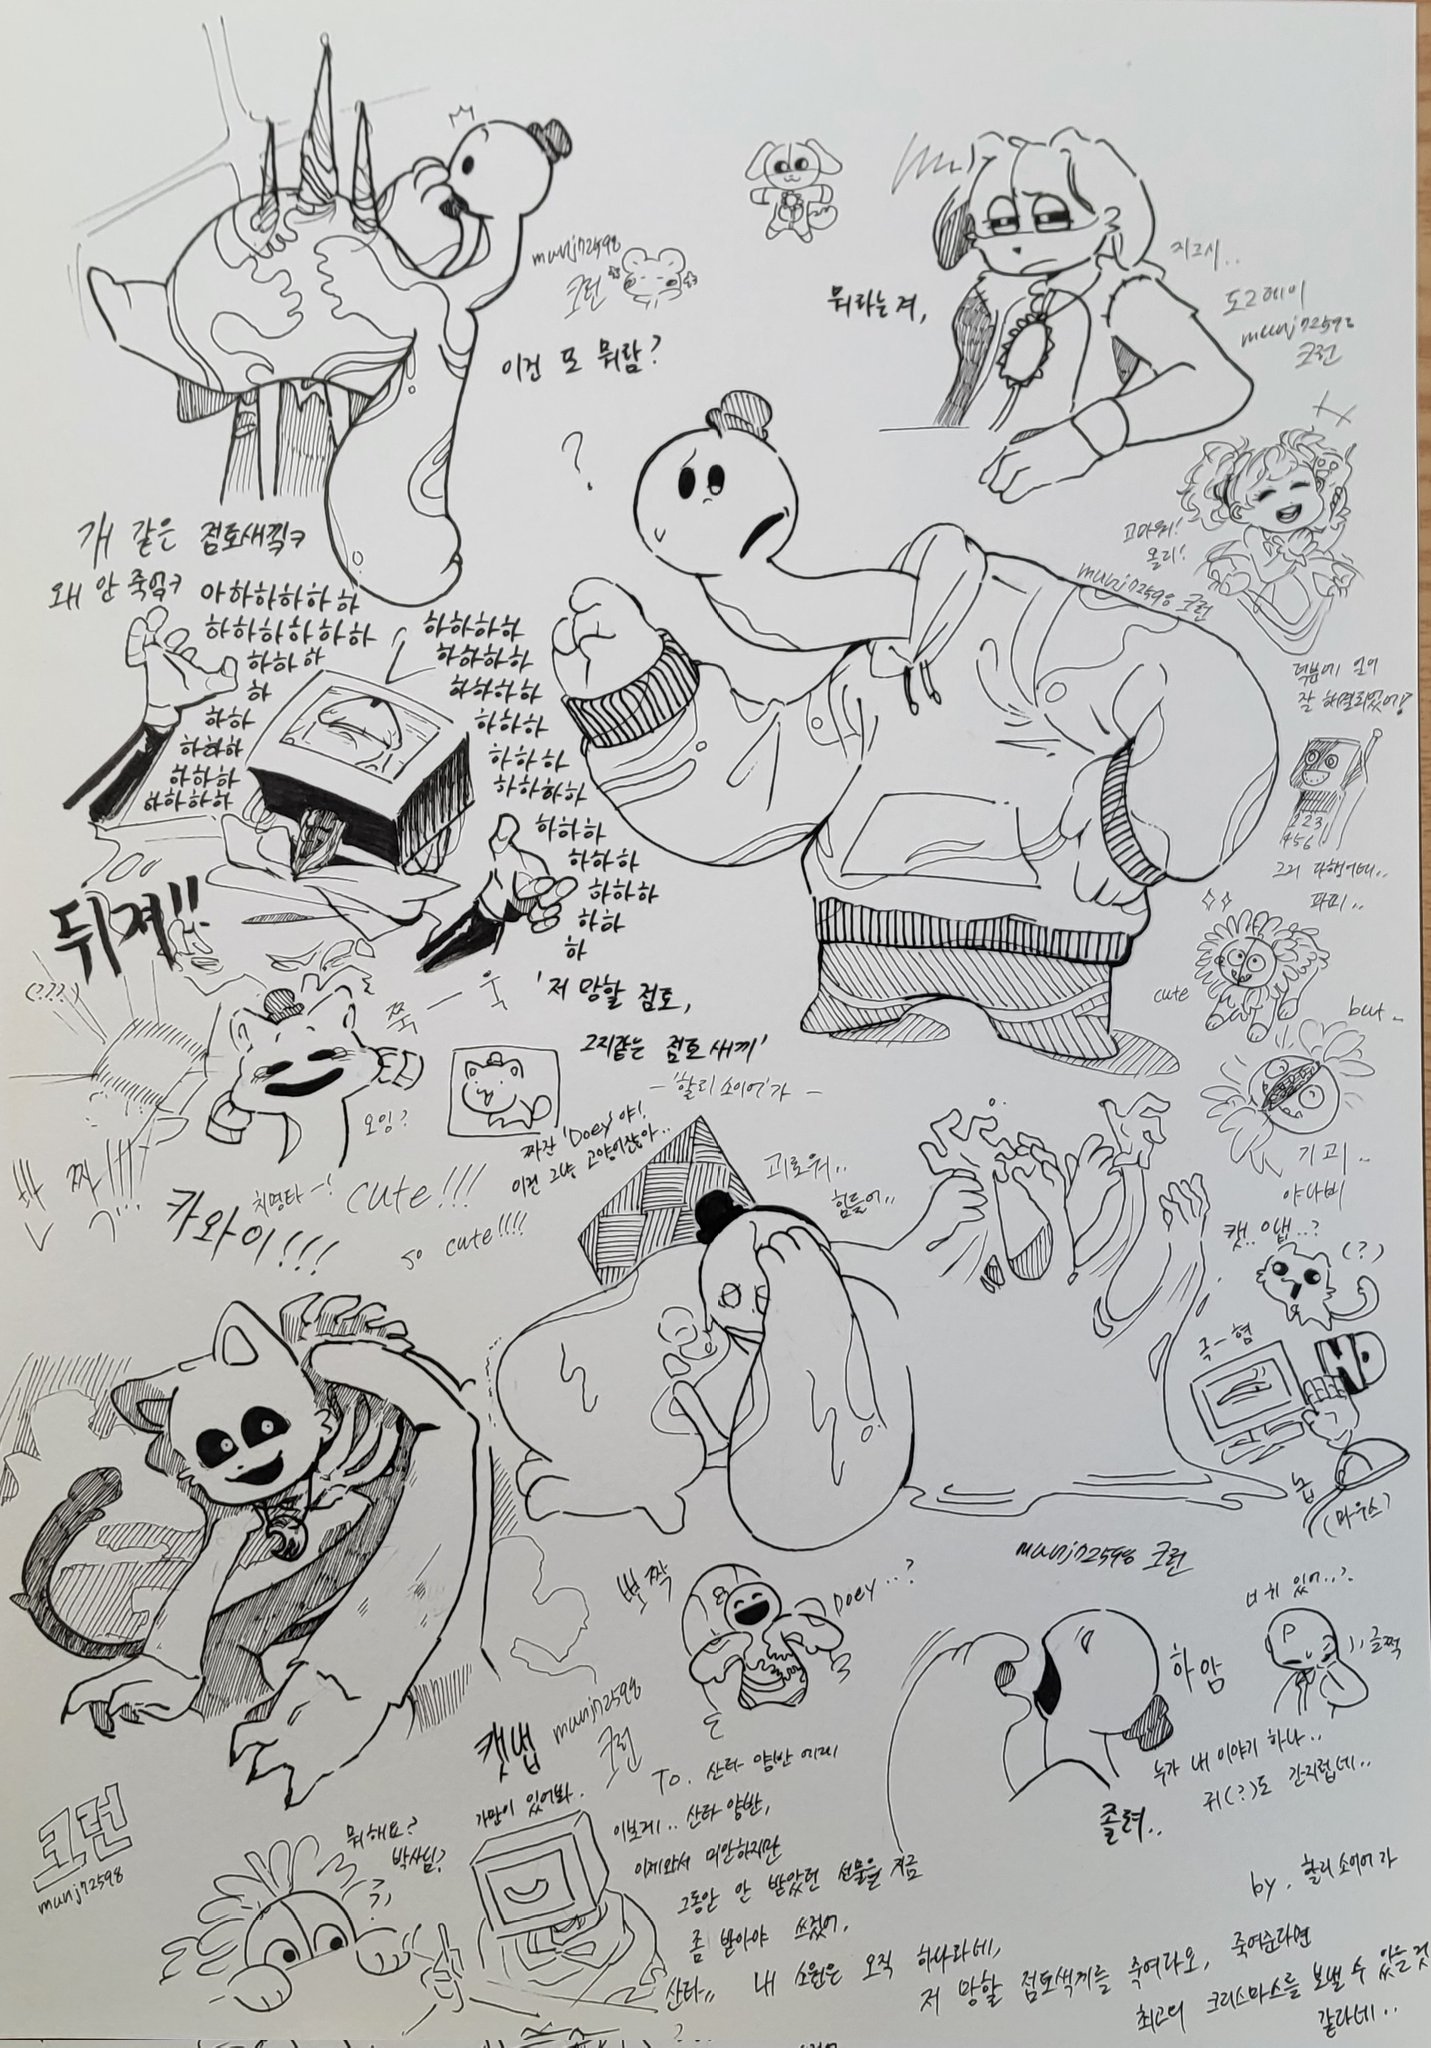 munj72598
크런
이건 또 뭐람?
뭐라는겨,
지그시..
도그데이
munj72598
크런
?
고마워!
올리!
munj72598 크런
덕분에 일이
잘 해결되었어!
개 같은 점토새끽ㅋ
왜 안 죽엌ㅋ
아하하하하하하
하하하하하하하
하하하
하
하하
하하하
하하하
하하하하
하하하하
하하하하
하하하하
하하하
하하하
하하하하
하하하
하하하
하하하
하하
하
뒤져!!
223
456
그거 다행이네..
파피..
cute
but..
기괴..
야나비
(???)
쭈ㅡ욱
'저 망할 점토,
그지같은 점토 새끼'
- '할리 소이어'가 -
오잉?
짜잔 'Doey야!
이건 그냥 고양이잖아..
치명타-!
카와이!!!
cute!!!
so cute!!!!
괴로워..
힘들어..
캣..냅..?
(?)
극ㅡ혐
NO
(마우스)
munj72598 크런
뽀짝
Doey..?
하암
P
글쩍
누가 내 이야기 하나..
귀(?)도 간지럽네..
졸려..
캣냅
munj72598
크런
가만히 있어봐.
뭐해요?
박사님?
크런
munj72598
To. 산타 양반에게
이보게.. 산타 양반,
이제와서 미안하지만
그동안 안 받았던 선물을 지금
좀 받아야 쓰겠어.
산타,, 내 소원은 오직 하나라네,
저 망할 점토색끼를 죽여다오, 죽여준다면
최고의 크리스마스를 보낼 수 있을 것
같다네..
by. 할리 소이어가